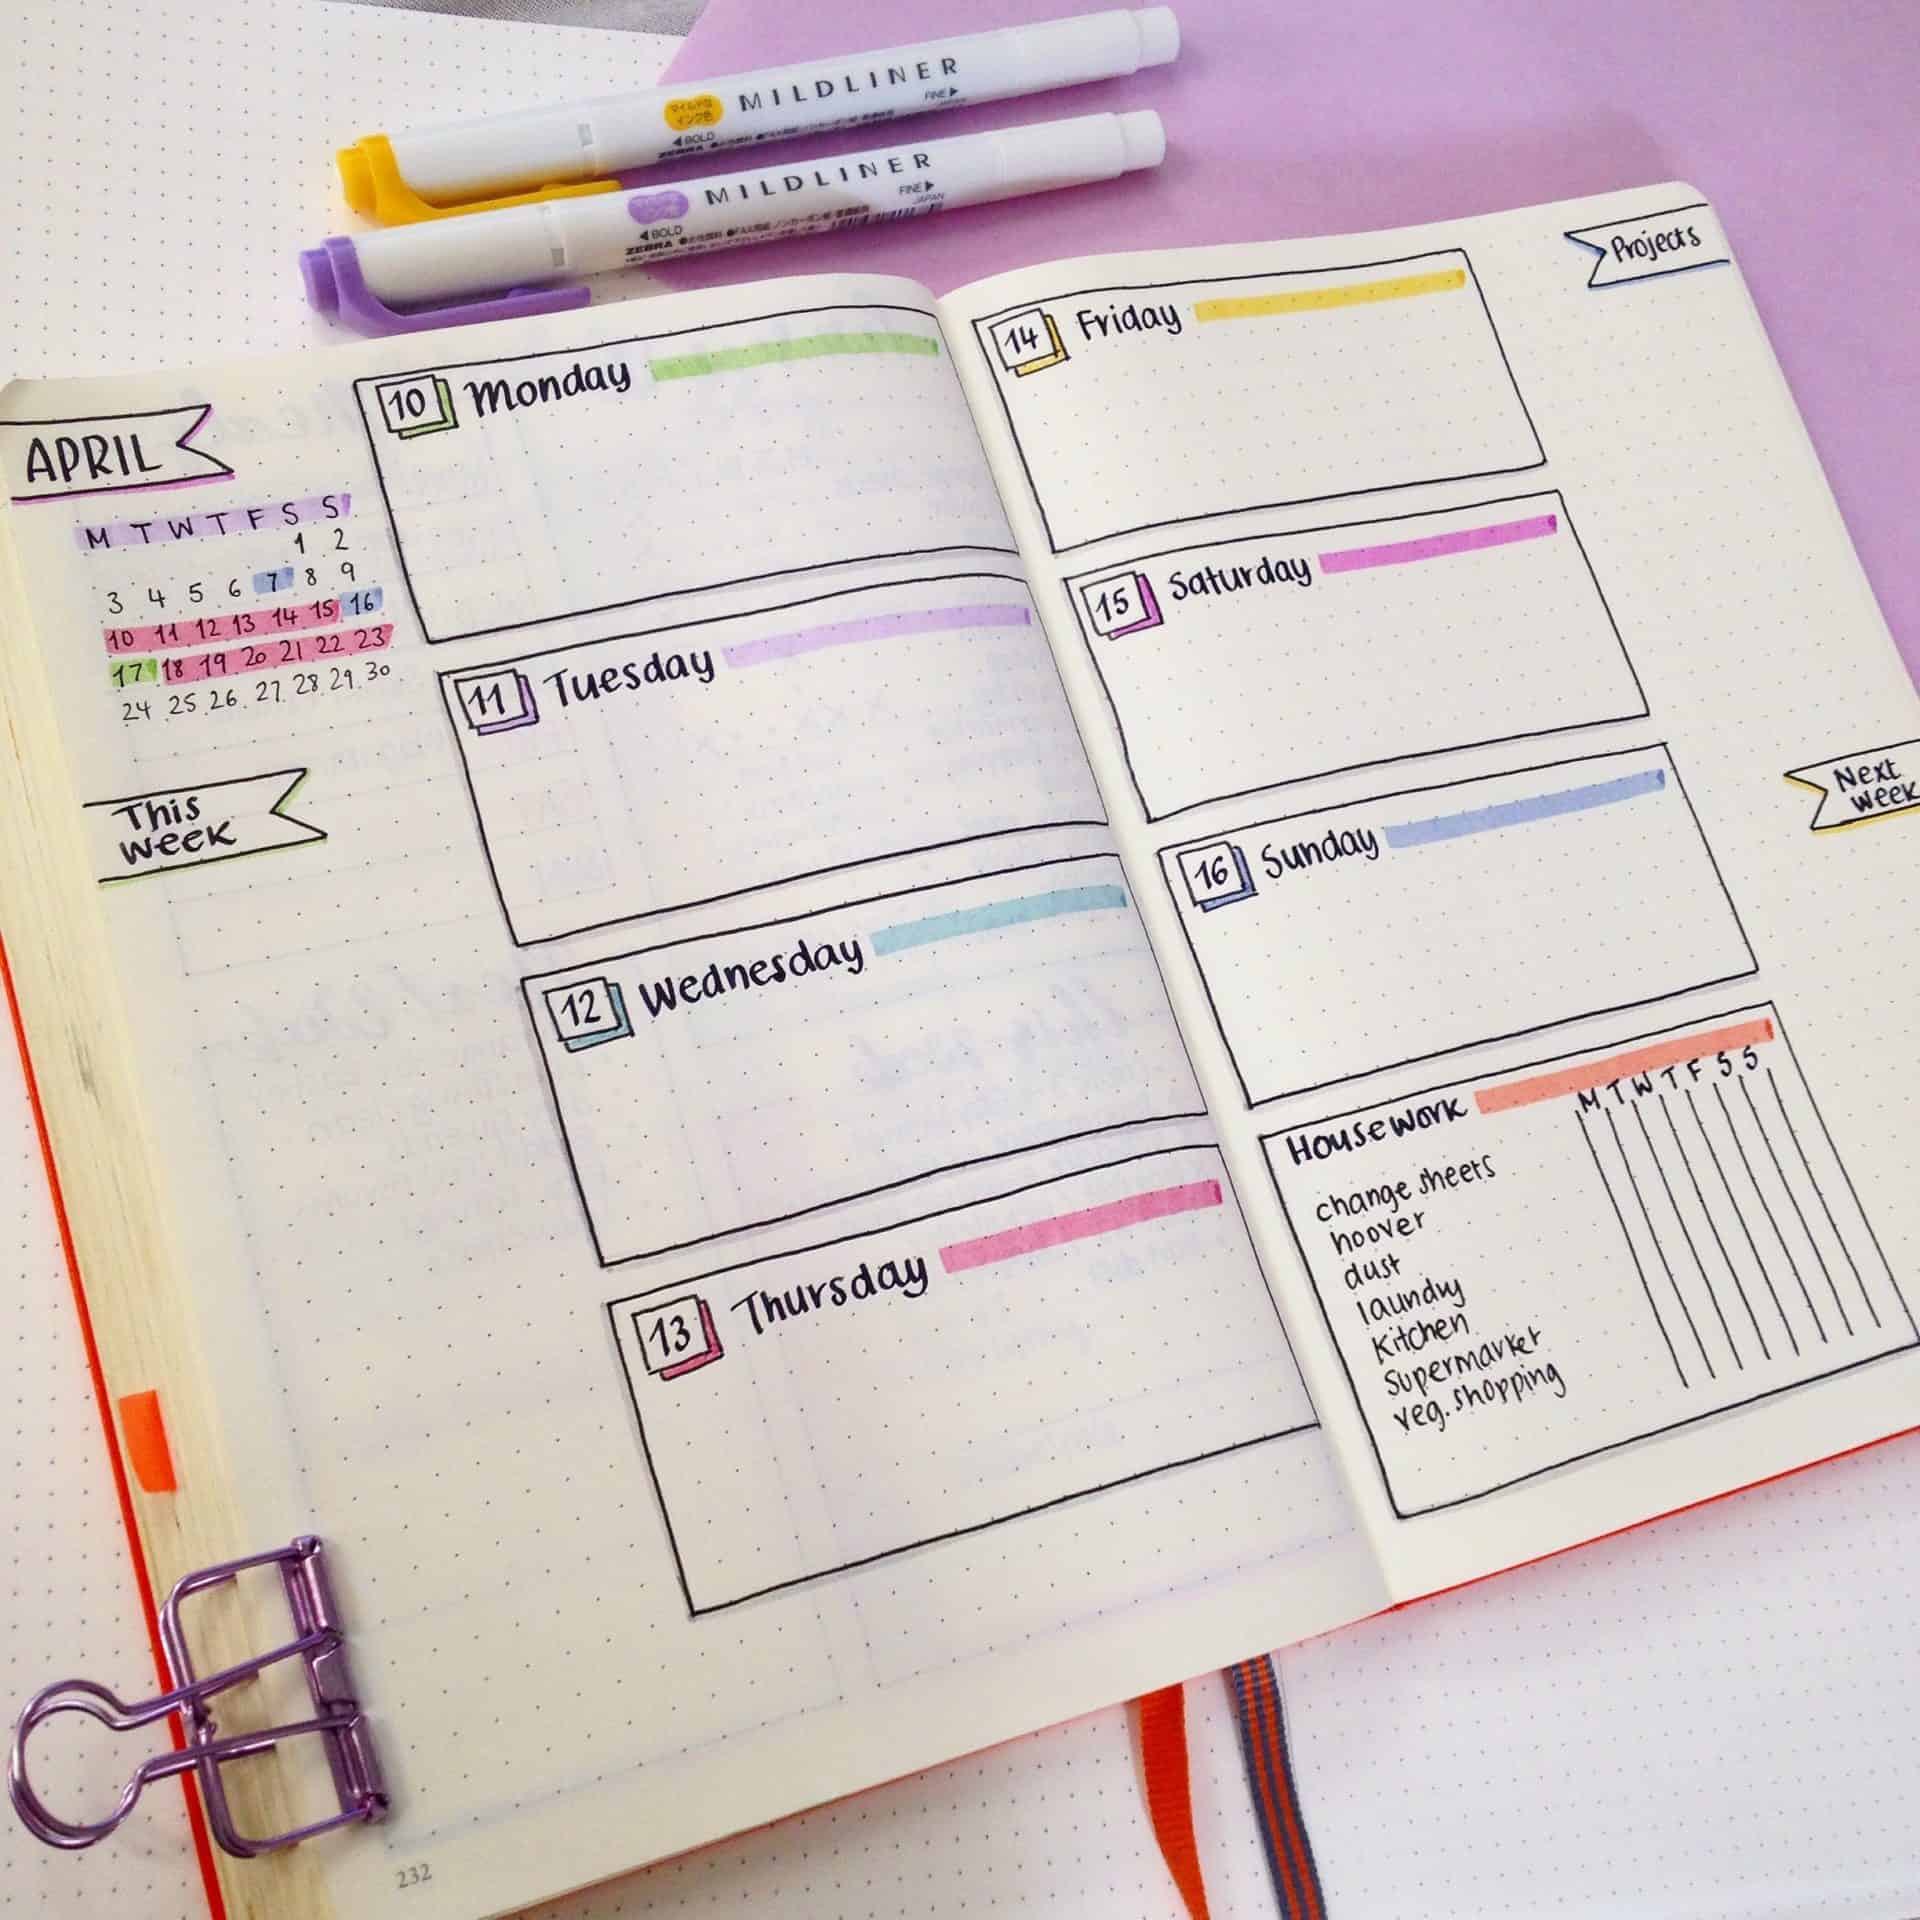 MILDLINER
FINE▶
JAPAN
◀BOLD
ZEBRA
MILDLINER
FINE▶
JAPAN
◀BOLD
ZEBRA
APRIL
M T W T F S S
1 2
3 4 5 6 7 8 9
10 11 12 13 14 15 16
17 18 19 20 21 22 23
24 25 26 27 28 29 30
This
week
10 Monday
11 Tuesday
12 Wednesday
13 Thursday
232
14 Friday
15 Saturday
16 Sunday
Housework
M T W T F S S
change sheets
hoover
dust
laundry
Kitchen
supermarket
veg. shopping
Projects
Next
week